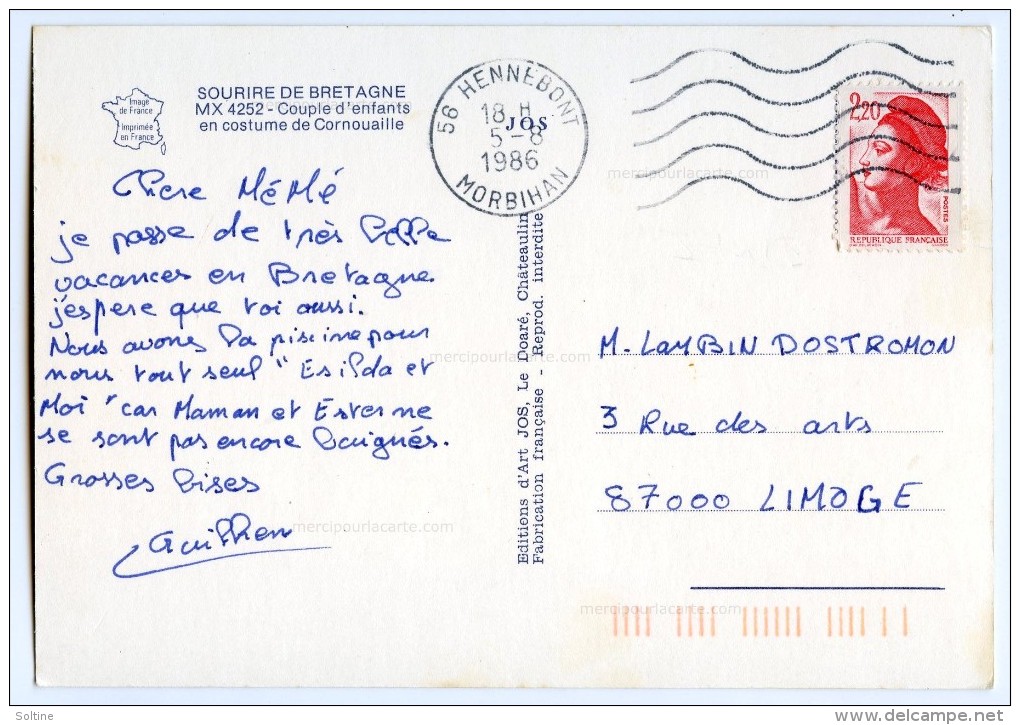 Image
de France
Imprimée
en France
SOURIRE DE BRETAGNE
MX 4252 - Couple d'enfants
en costume de Cornouaille
56 HENNEBONT
18 H
5-8
1986
MORBIHAN
JOS
2,20
POSTES
REPUBLIQUE FRANÇAISE
Chere MéMé
je passe de très belle
vacances en Bretagne
j'espere que toi aussi.
Nous avons la piscine pour
nous tout seul "Esilda et
Moi" car Maman et Ester ne
se sont pas encore baignés.
Grosses bises
Guilhem
Editions d'Art JOS, Le Doaré, Châteaulin
Fabrication française - Reprod. interdite
M. LAMBIN DOSTROMON
3 Rue des arts
87000 LIMOGE
mercipourlacarte.com
mercipourlacarte.com
mercipourlacarte.com
mercipourlacarte.com
Soltine
delcampe.net